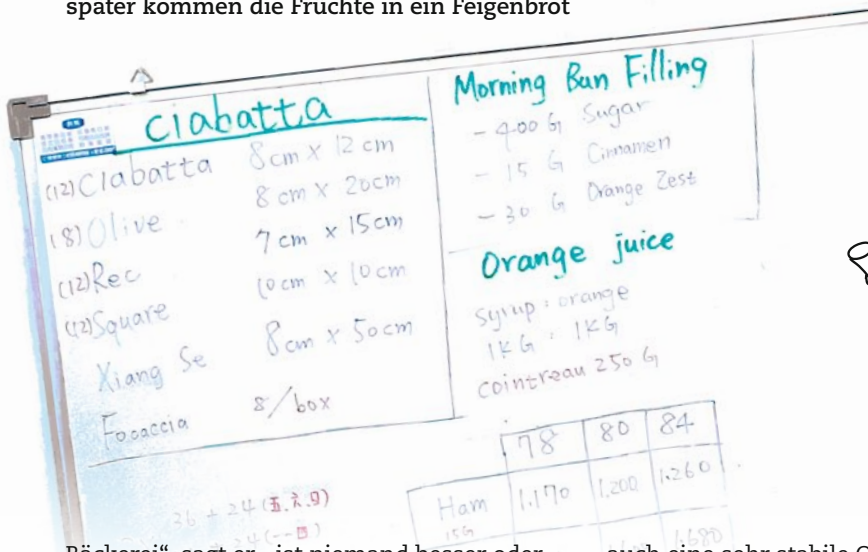 später kommen die Früchte in ein Feigenbrot
ciabatta
(12)Ciabatta 8cm x 12cm
(8)Olive 8cm x 20cm
(12)Rec 7cm x 15cm
(12)Square 10cm x 10cm
Xiang Se 8cm x 50cm
Focaccia 8/box
36 + 24 (五.六.日)
24 (一-四)
Morning Bun Filling
- 400 G Sugar
- 15 G Cinnamen
- 30 G Orange Zest
Orange juice
syrup : orange
1KG : 1KG
cointreau 250 G
78 80 84
Ham 1.170 1.200 1.260
15G
1.680
Bäckerei“, sagt er, „ist niemand besser oder
auch eine sehr stabile